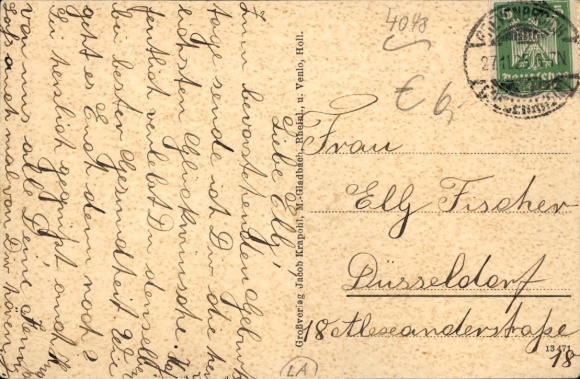 Liebe Elly!
Zum bevorstehenden Geburts
tage sende ich Dir die herz
lichsten Glückwünsche. Hof
fentlich verlebst Du denselben
bei bester Gesundheit. Wie
geht es Euch denn noch?
Sei herzlich gegrüßt, auch
von uns all. Deine
Laß auch mal von Dir hören.
Großverlag Jacob Krapohl, M.-Gladbach, Rheinl., u. Venlo, Holl.
4048
€ 6,-
5
27.11.25
Deutsches
Frau
Elly Fischer
Düsseldorf
18 Alexanderstraße
18
13 471
LA